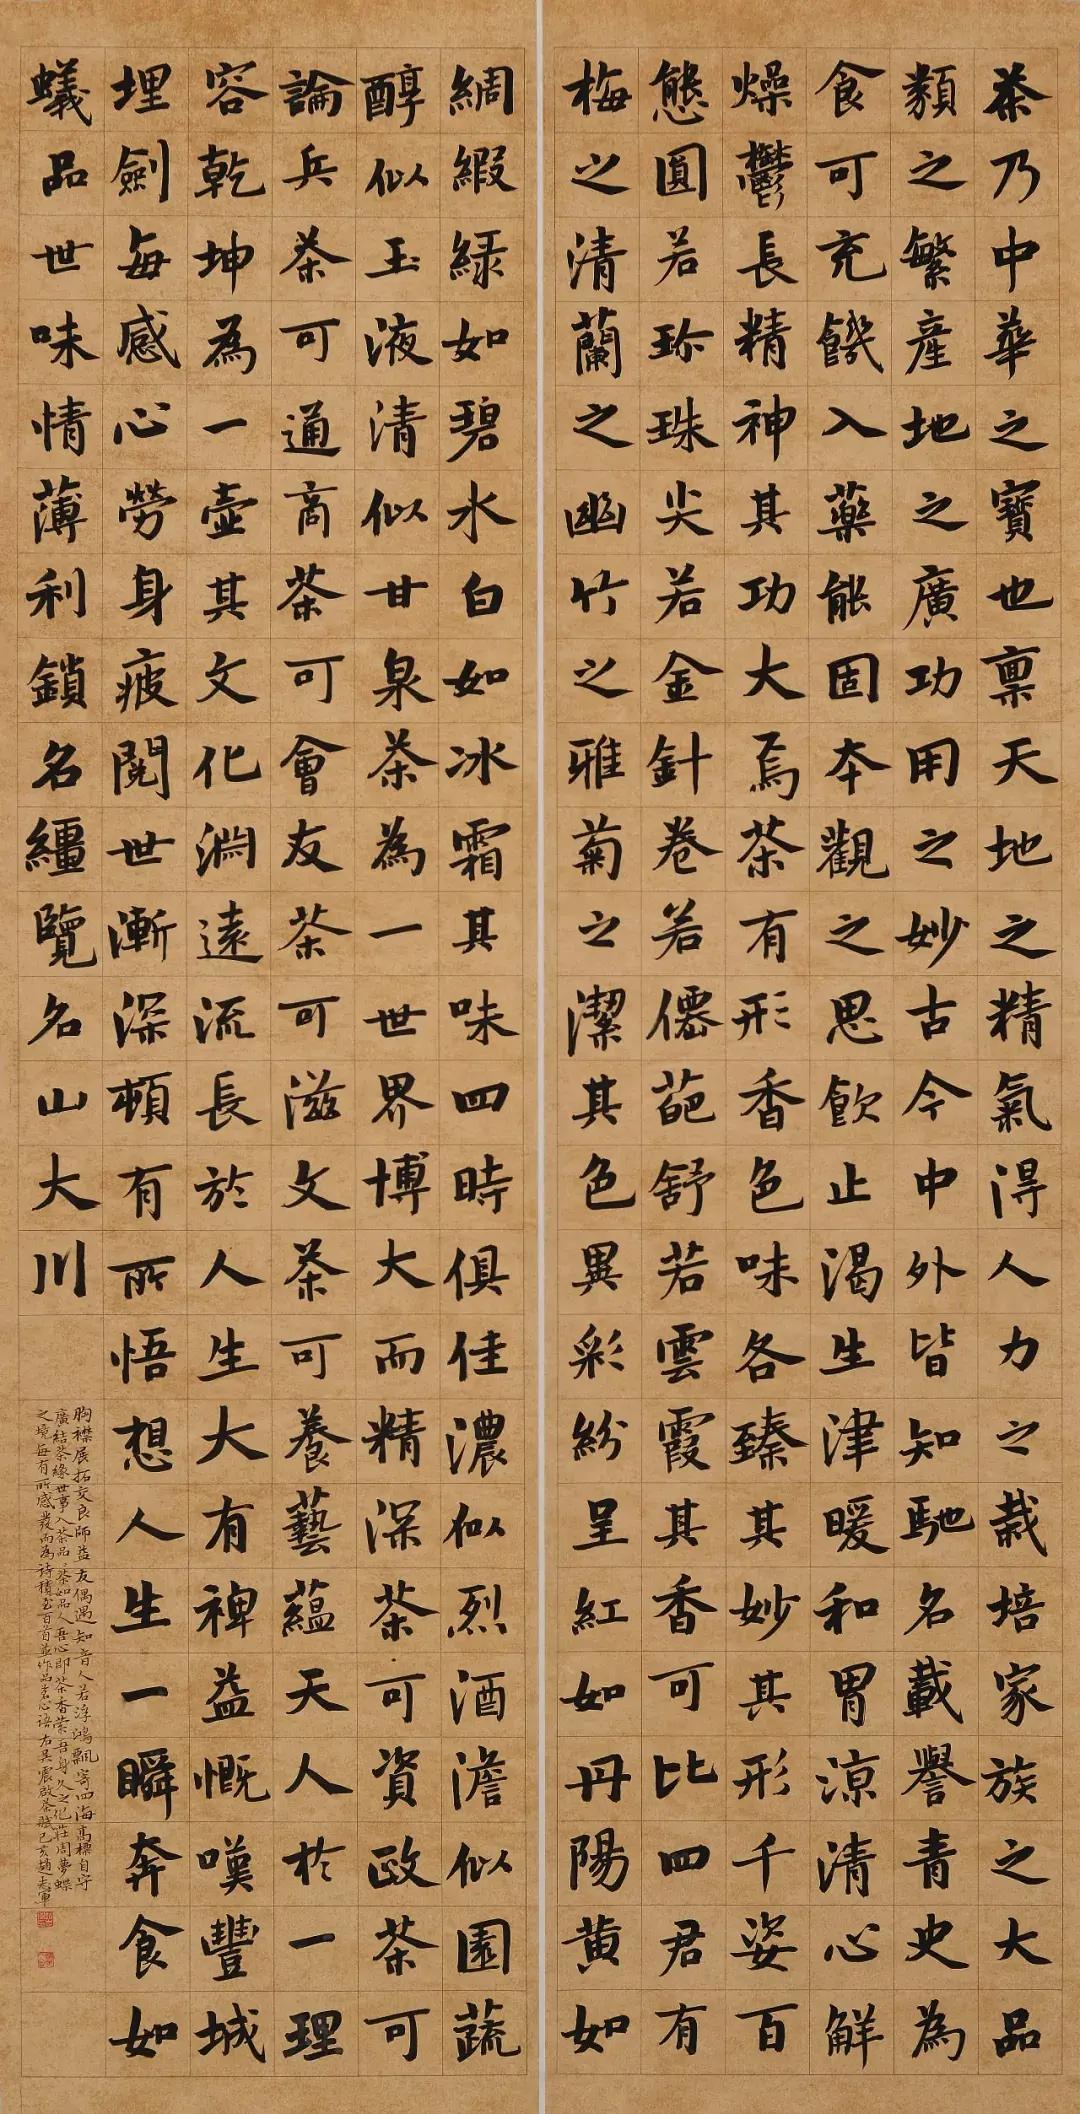 茶乃中華之寶也禀天地之精氣得人力之栽培家族之大品
類之繁產地之廣功用之妙古今中外皆知馳名載譽青史為
食可充饑入藥能固本觀之思飲止渴生津暖和胃涼清心解
燥鬱長精神其功大焉茶有形香色味各臻其妙其形千姿百
態圓若珍珠尖若金針卷若僊葩舒若雲霞其香可比四君有
梅之清蘭之幽竹之雅菊之潔其色異彩紛呈紅如丹陽黃如
綢緞綠如碧水白如冰霜其味四時俱佳濃似烈酒澹似園蔬
醇似玉液清似甘泉茶為一世界博大而精深茶可資政茶可
論兵茶可通商茶可會友茶可滋文茶可養藝蘊天人於一理
容乾坤為一壺其文化淵遠流長於人生大有裨益慨嘆豐城
埋劍每感心勞身疲閱世漸深頓有所悟想人生一瞬奔食如
蟻品世味情薄利鎖名韁覽名山大川
胸襟展拓交良師益友偶遇知音人若浮鴻飄寄四海高標自守
廣結茶緣世事入茶品茶如品人吾心即茶香縈吾身久之化莊周夢蝶
之境每有所感發而為詩積至百首並作品茗心語右吳震啟茶賦己亥趙志軍